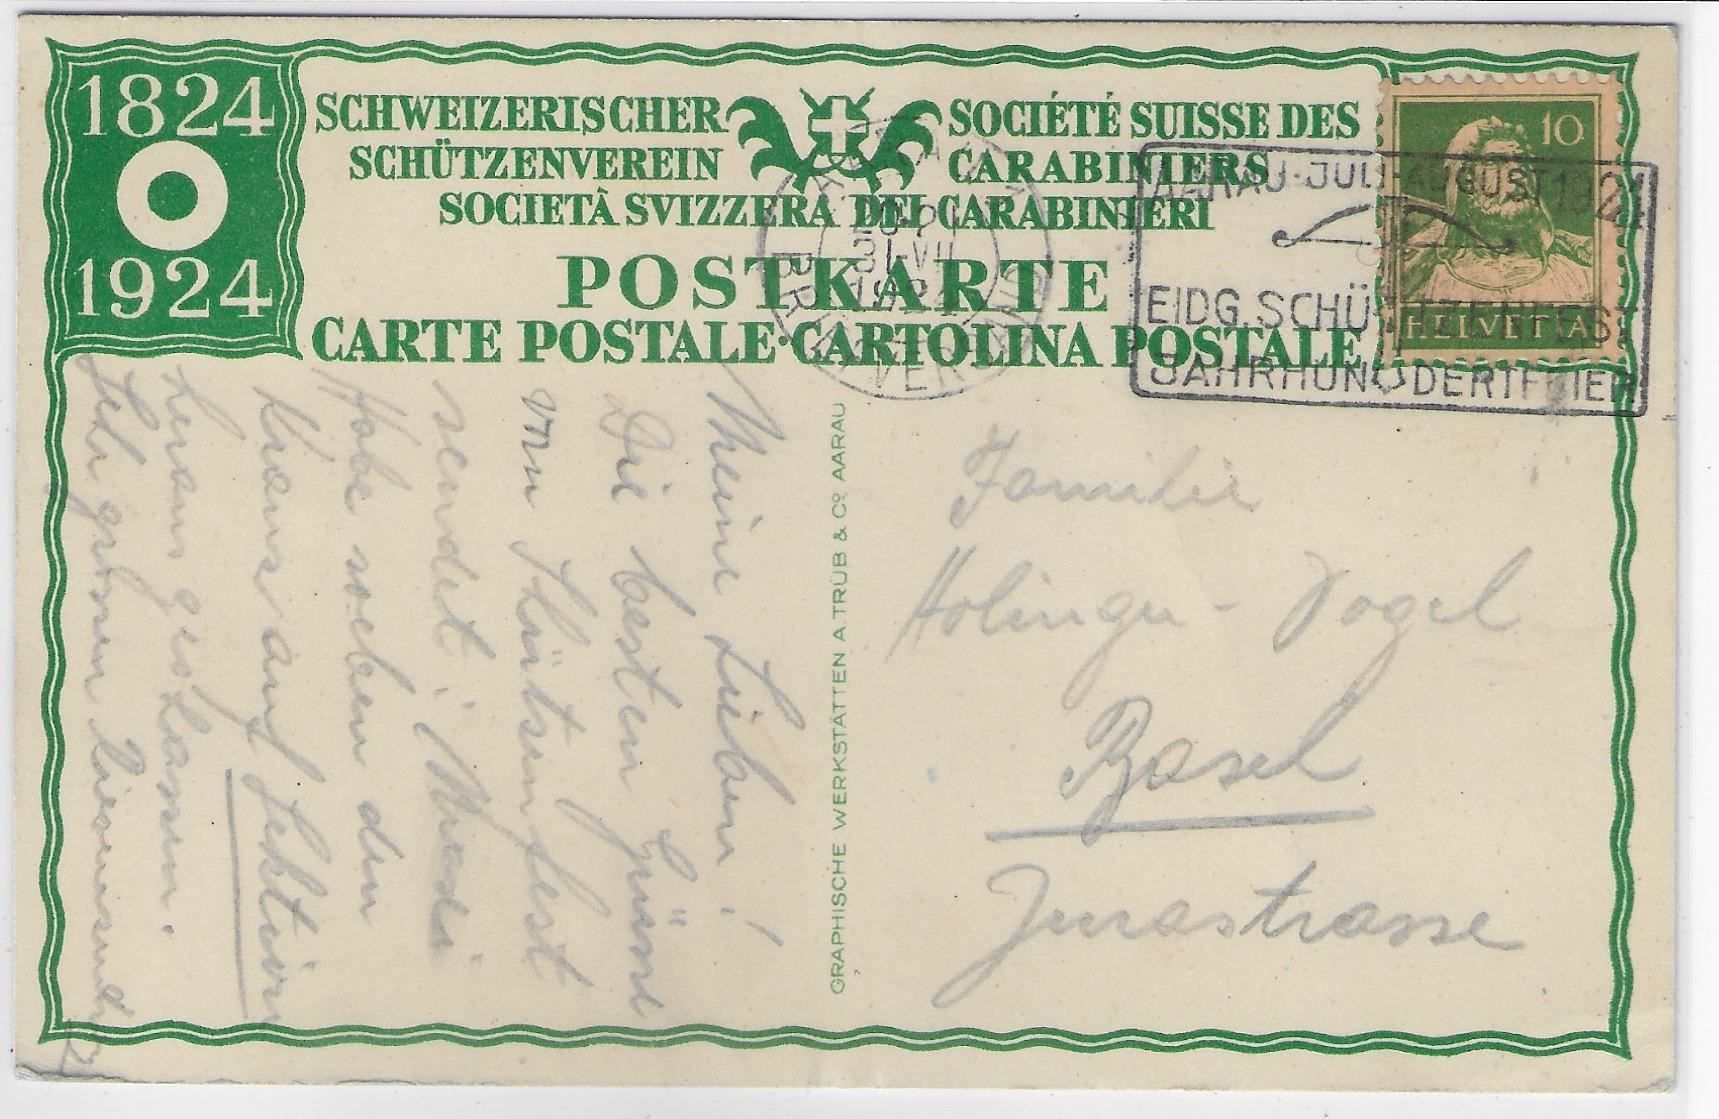 1824
1924
SCHWEIZERISCHER
SCHÜTZENVEREIN
SOCIÉTÉ SUISSE DES
CARABINIERS
SOCIETÀ SVIZZERA DEI CARABINIERI
POSTKARTE
CARTE POSTALE·CARTOLINA POSTALE
10
HELVETIA
AARAU·JULI-AUGUST 1924
EIDG. SCHÜTZENFEST
JAHRHUNDERTFEIER
31.VII
1924
BRIEFVERSAND
GRAPHISCHE WERKSTÄTTEN A. TRÜB & Co. AARAU
Familie
Holinger - Vogel
Basel
Jurastrasse
Meine Lieben!
Die besten Grüsse
vom Schützenfest
sendet
Habe soeben den
Kranz auf Sektion
heraus geschossen.